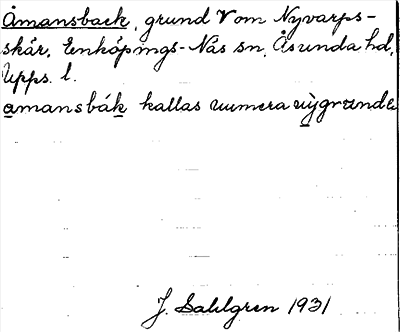 Åmansback, grund V om Nyvarps-
skär, Enköpings-Näs sn, Åsunda hd,
Upps. l.
amansbák kallas numera nỳgrundet
J. Sahlgren 1931